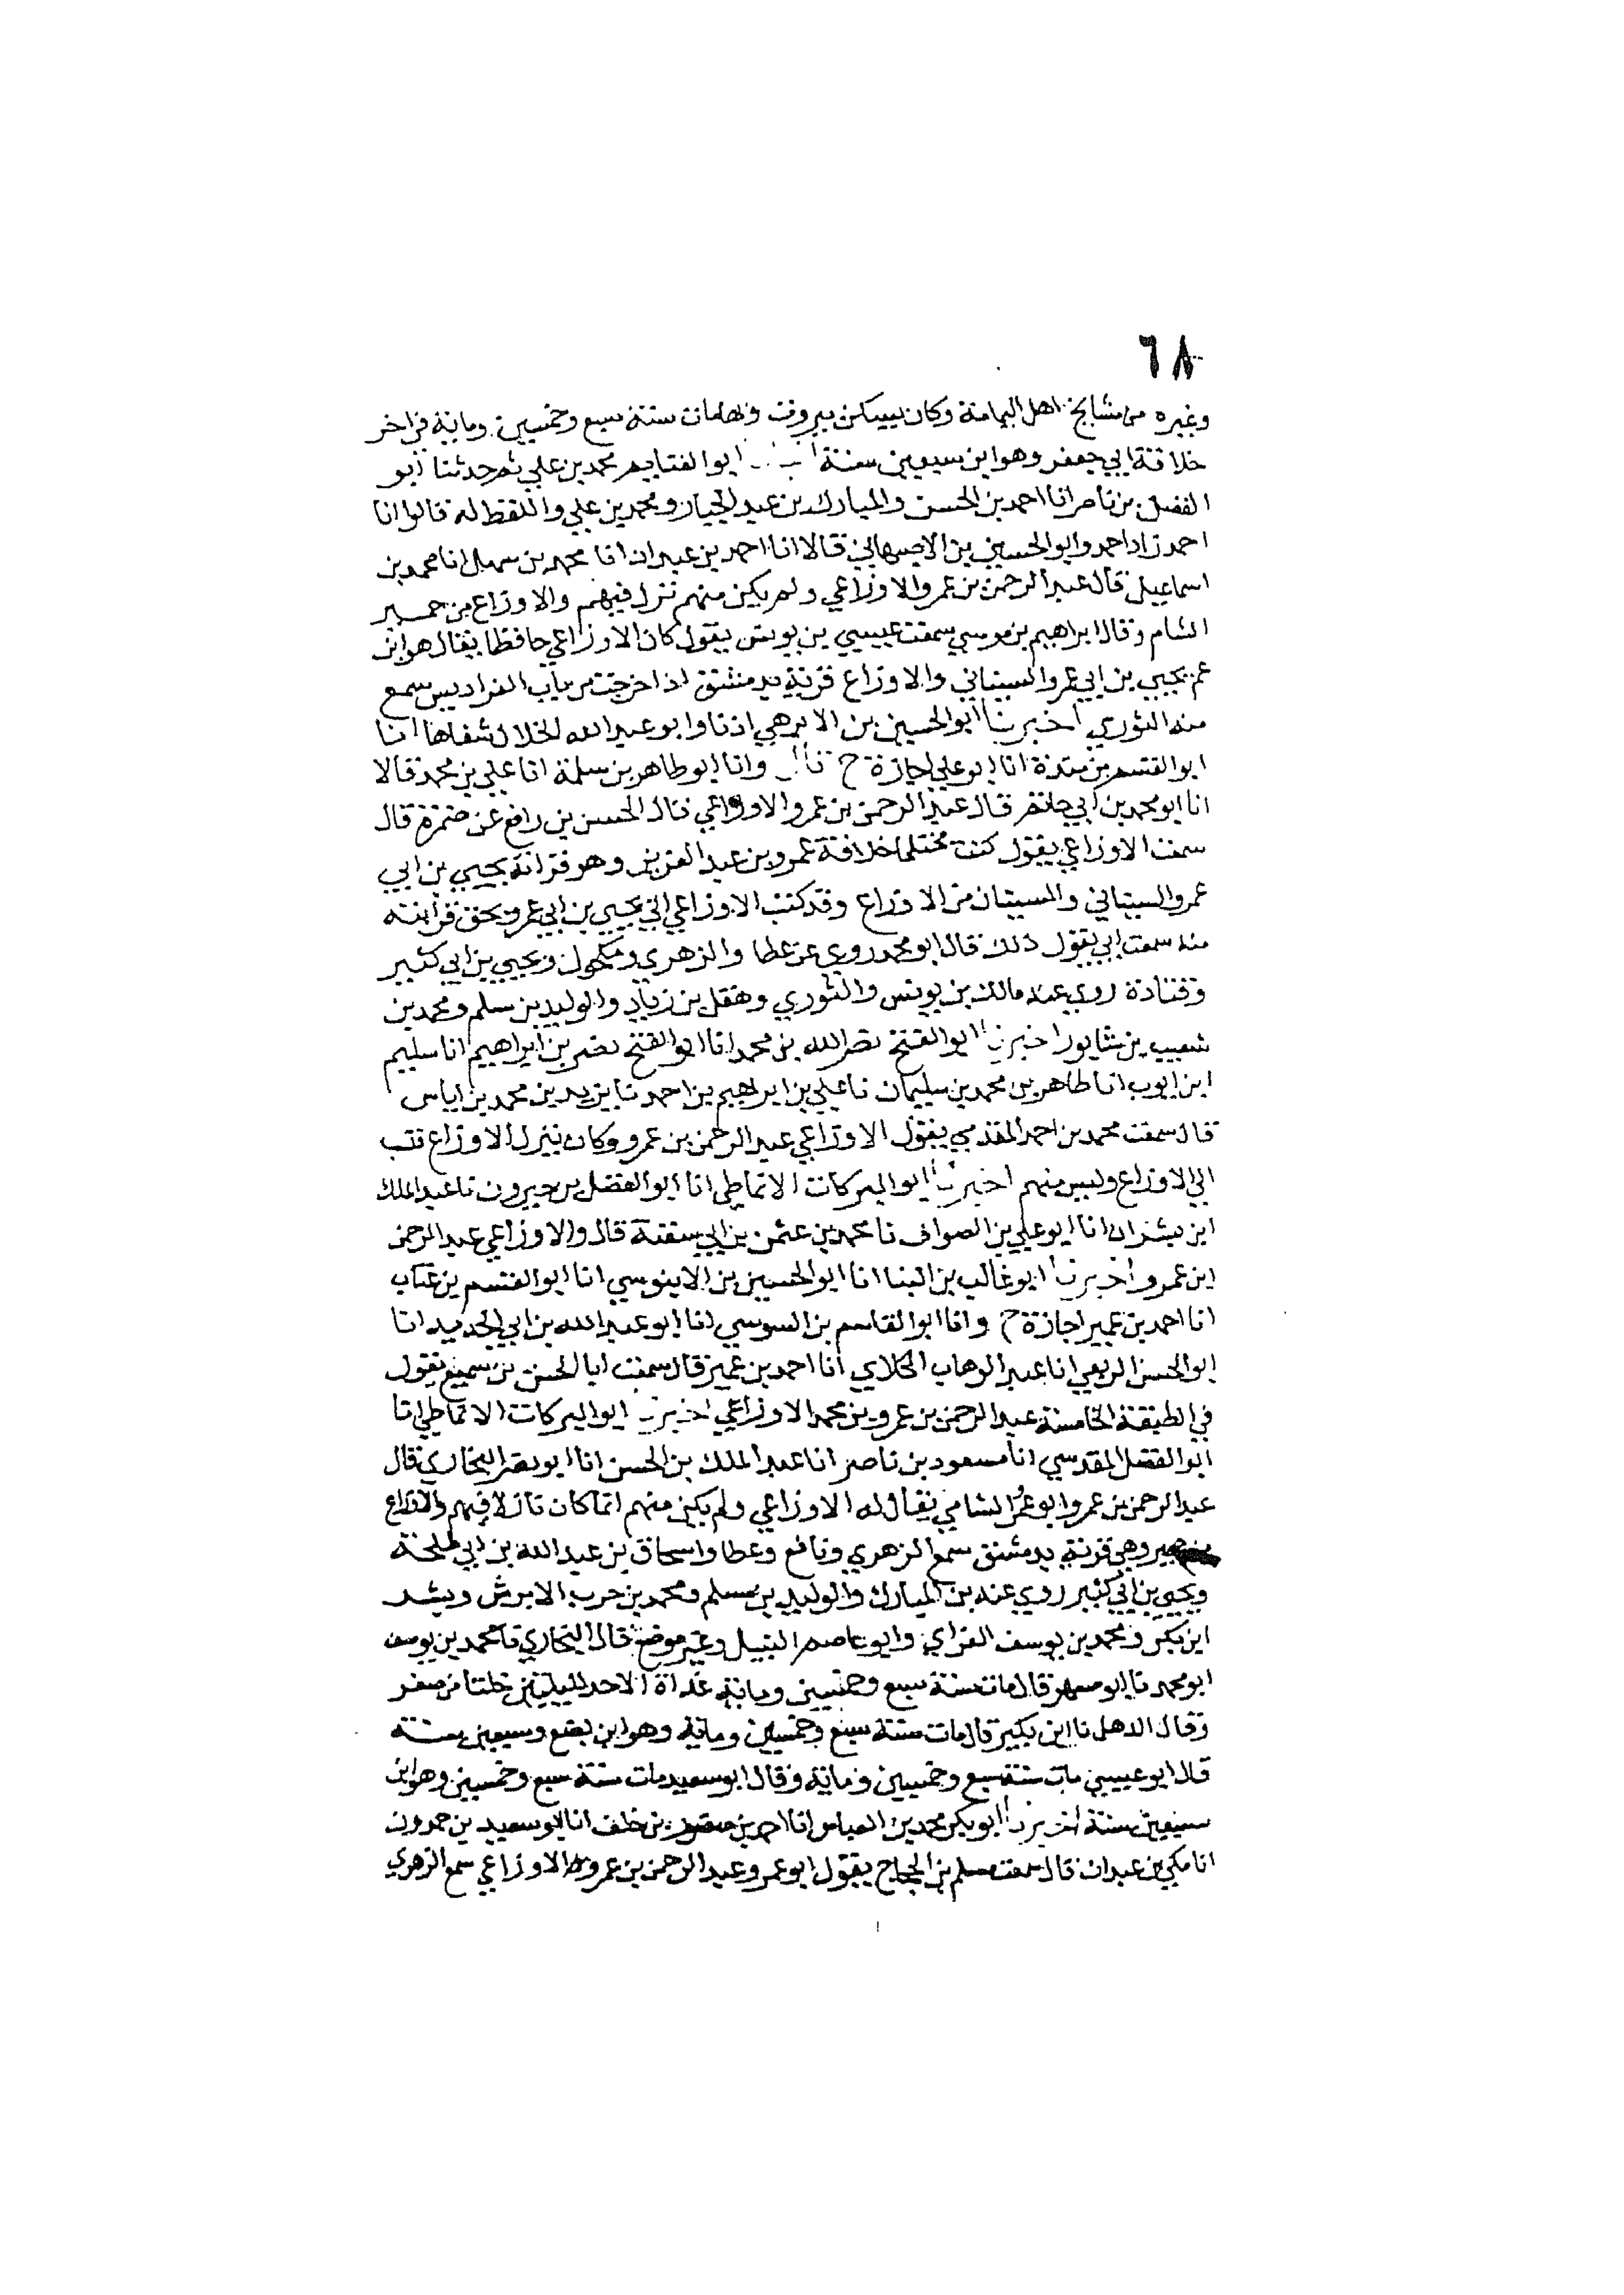 ٦٨
وغيره من مشايخ اهل اليمامة وكان يسكن بيروت وبها مات سنة سبع وخمسين وماية في اخر
خلافة ابي جعفر وهو ابن سبعين سنة ابو الغنايم محمد بن علي ثم حدثنا ابو
الفضل بن ناصر انا احمد بن الحسن والمبارك بن عبد الجبار ومحمد بن علي واللفظ له قالوا انا
احمد زاد احمد وابو الحسين بن الاصبهاني قالا انا احمد بن عبدان انا محمد بن سهل انا محمد بن
اسماعيل قال عبد الرحمن بن عمرو الاوزاعي ولم يكن منهم نزل فيهم والاوزاع من حمير
الشام وقال ابراهيم بن موسي سمعت عيسي بن يونس يقول كان الاوزاعي حافظا يقال هو ابن
عم يحيي بن ابي عمرو السيباني والاوزاع قرية بدمشق اذا خرجت من باب الفراديس سمع
منه الثوري اخبرنا ابو الحسين بن الابرهي اذنا وابو عبد الله الخلال شفاها انا
ابو القسم بن مندة انا ابو علي اجازة ح قال وانا ابو طاهر بن سلمة انا علي بن محمد قالا
انا ابو محمد بن ابي حاتم قال عبد الرحمن بن عمرو الاوزاعي قال الحسن بن رافع عن ضمرة قال
سمعت الاوزاعي يقول كنت محتلما خلافة عمرو بن عبد العزيز وهو قرابة يحيي بن ابي
عمرو السيباني والسيبان من الاوزاع وقد كتب الاوزاعي الي يحيي بن ابي عمرو بحق قرابته
منه سمعت ابي يقول ذلك قال ابو محمد روي عن عطا والزهري ومكحول ويحيي بن ابي كثير
وقتادة روي عنه مالك بن يونس والثوري وهقل بن زياد والوليد بن سلم ومحمد بن
شعيب بن شابور اخبرنا ابو الفتح نصر الله بن محمد انا ابو الفتح نصر بن ابراهيم انا سليم
ابن ايوب انا طاهر بن محمد بن سليمان نا علي بن ابراهيم بن احمد نا يزيد بن محمد بن اياس
قال سمعت محمد بن احمد المقدمي يقول الاوزاعي عبد الرحمن بن عمرو وكان ينزل الاوزاع فنسب
الي الاوزاع وليس منهم اخبرنا ابو البركات الانماطي انا ابو الفضل بن خيرون نا عبد الملك
ابن بشران انا ابو علي بن الصواف نا محمد بن عثمن بن ابي شيبة قال والاوزاعي عبد الرحمن
ابن عمرو اخبرنا ابو غالب بن البنا انا ابو الحسين بن الابنوسي انا ابو القسم بن عتاب
انا احمد بن عمير اجازة ح وانا ابو القاسم بن السوسي انا ابو عبد الله بن ابي الحديد انا
ابو الحسن الربعي انا عبد الوهاب الكلابي انا احمد بن عمير قال سمعت ابا الحسن بن سميع يقول
في الطبقة الخامسة عبد الرحمن بن عمرو بن محمد الاوزاعي اخبرنا ابو البركات الانماطي انا
ابو الفضل المقدسي انا مسعود بن ناصر انا عبد الملك بن الحسن انا ابو نصر البخاري قال
عبد الرحمن بن عمرو ابو عمر الشامي يقال له الاوزاعي ولم يكن منهم انما كان نازلا فيهم والاوزاع
من حمير وهي قرية بدمشق سمع الزهري ونافع وعطا واسحاق بن عبد الله بن ابي طلحة
ويحيي بن ابي كثير روي عنه بن المبارك والوليد بن مسلم ومحمد بن حرب الابرش وبشر
ابن بكر ومحمد بن يوسف الفرابي وابو عاصم النبيل وغير موضع قال البخاري نا محمد بن يوسف
ابو محمد نا ابو مسهر قال مات سنة سبع وخمسين وماية غداة الاحد لليلتين خلتا من صفر
وقال الذهلي نا ابن بكير قال مات سنة سبع وخمسين وماية وهو ابن بضع وسبعين سنة
قال ابو عيسي مات سنة سبع وخمسين وماية وقال ابو سعيد مات سنة سبع وخمسين وهو ابن
سبعين سنة اخبرنا ابو بكر محمد بن العباس انا احمد بن منصور بن خلف انا ابو سعيد بن حمدون
انا مكي بن عبدان قال سمعت مسلم بن الحجاج يقول ابو عمرو عبد الرحمن بن عمرو الاوزاعي سمع الزهري